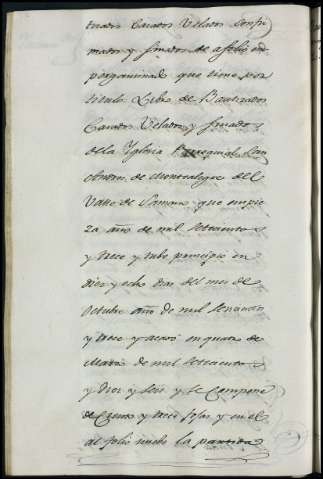 tizados Casados Velados Confir
mados y finados de a folio en
pergaminado que tiene por
titulo Libro de Bautizados
Casados Velados y finados
de la Yglesia Parroquial San
de Montealegre del
Valle de que empie
za año de mil Setecientos
y trece y tubo principio en
diez y ocho dias del mes de
Octubre año de mil Setecientos
y trece y acavó en quatro de
Marzo de mil Setecientos
y diez y seis y se Compone
de Ciento y trece fojas y en el
al folio nuebe la partida